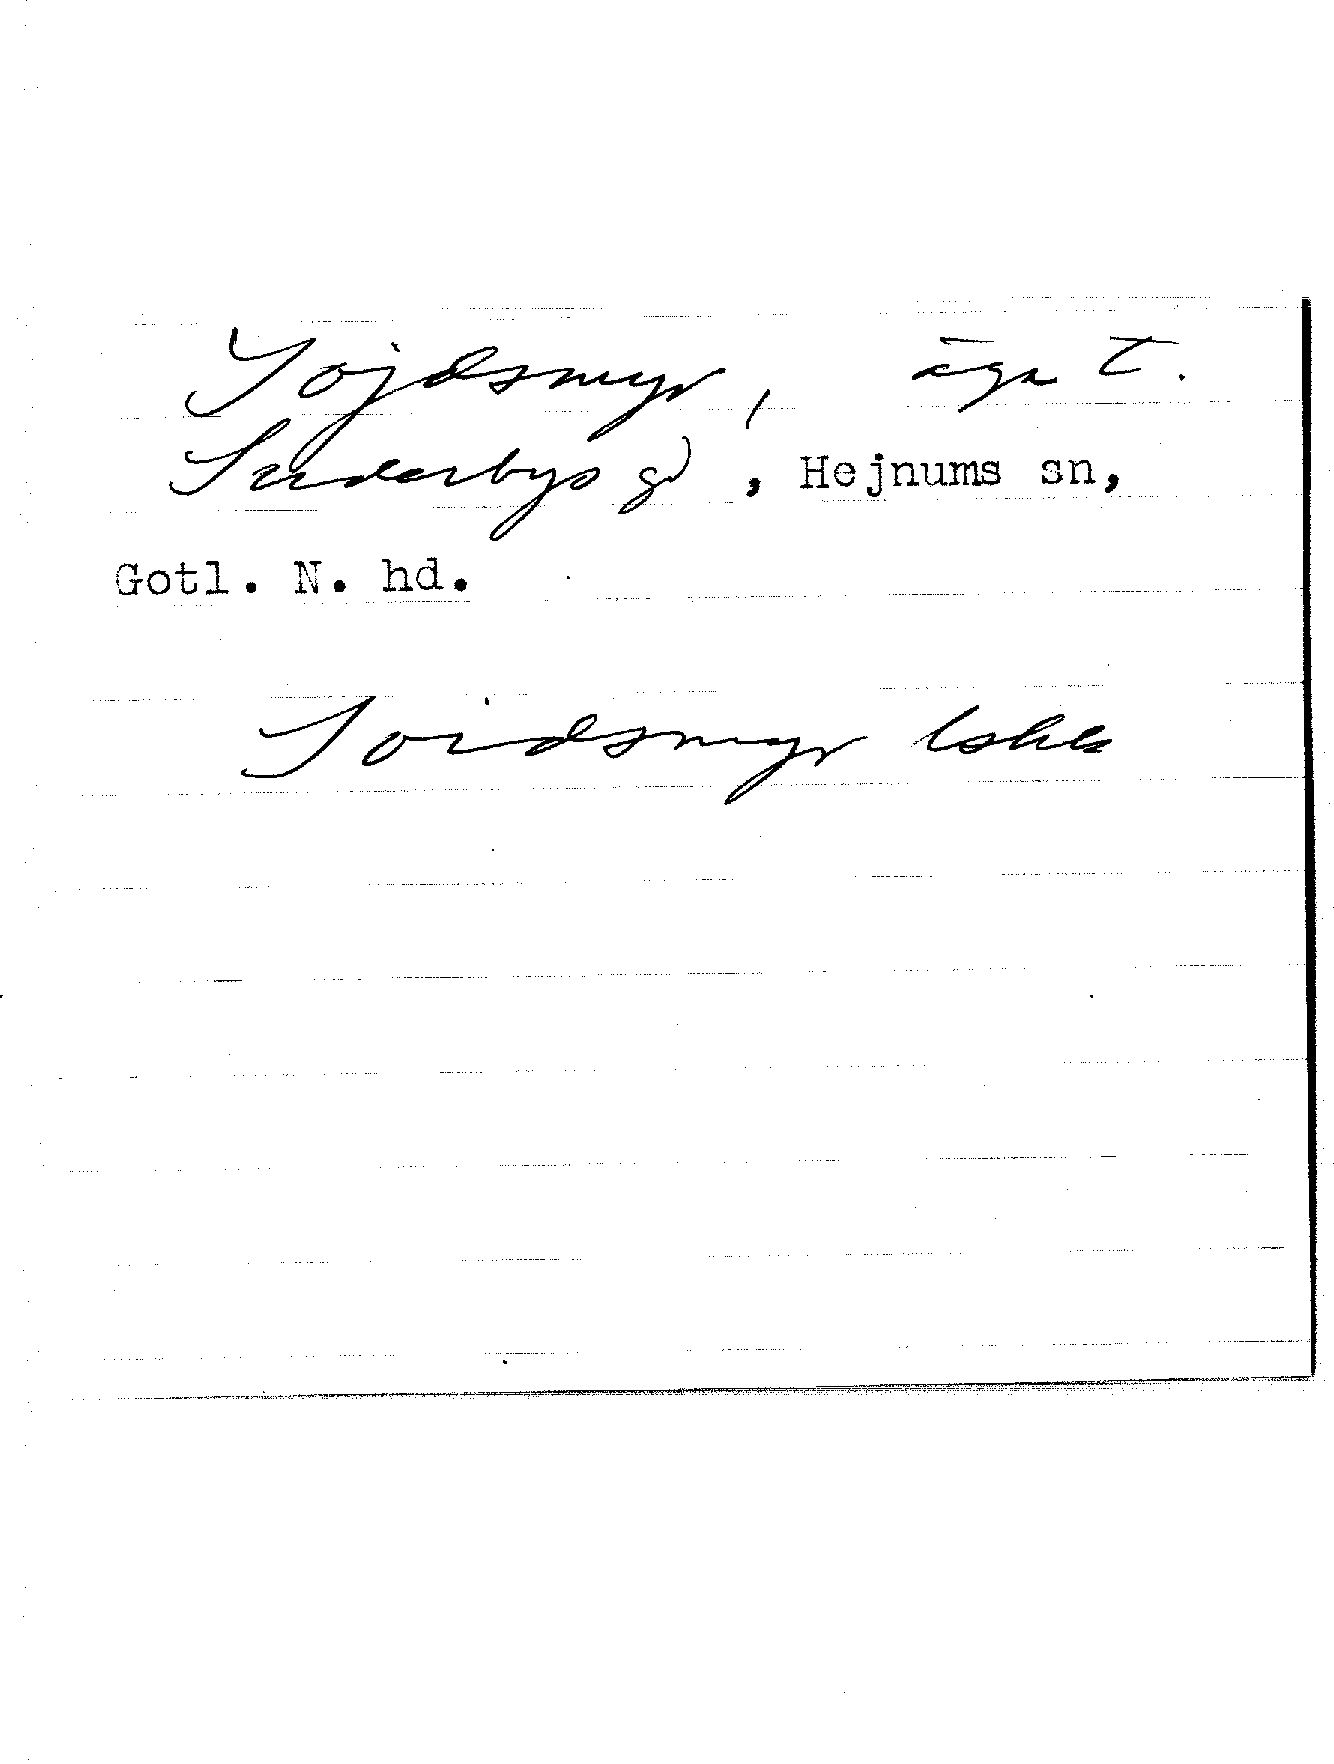 Sojdsmyr, äga t.
Suderbys gd, Hejnums sn,
Gotl. N. hd.
Soidsmyr lskls